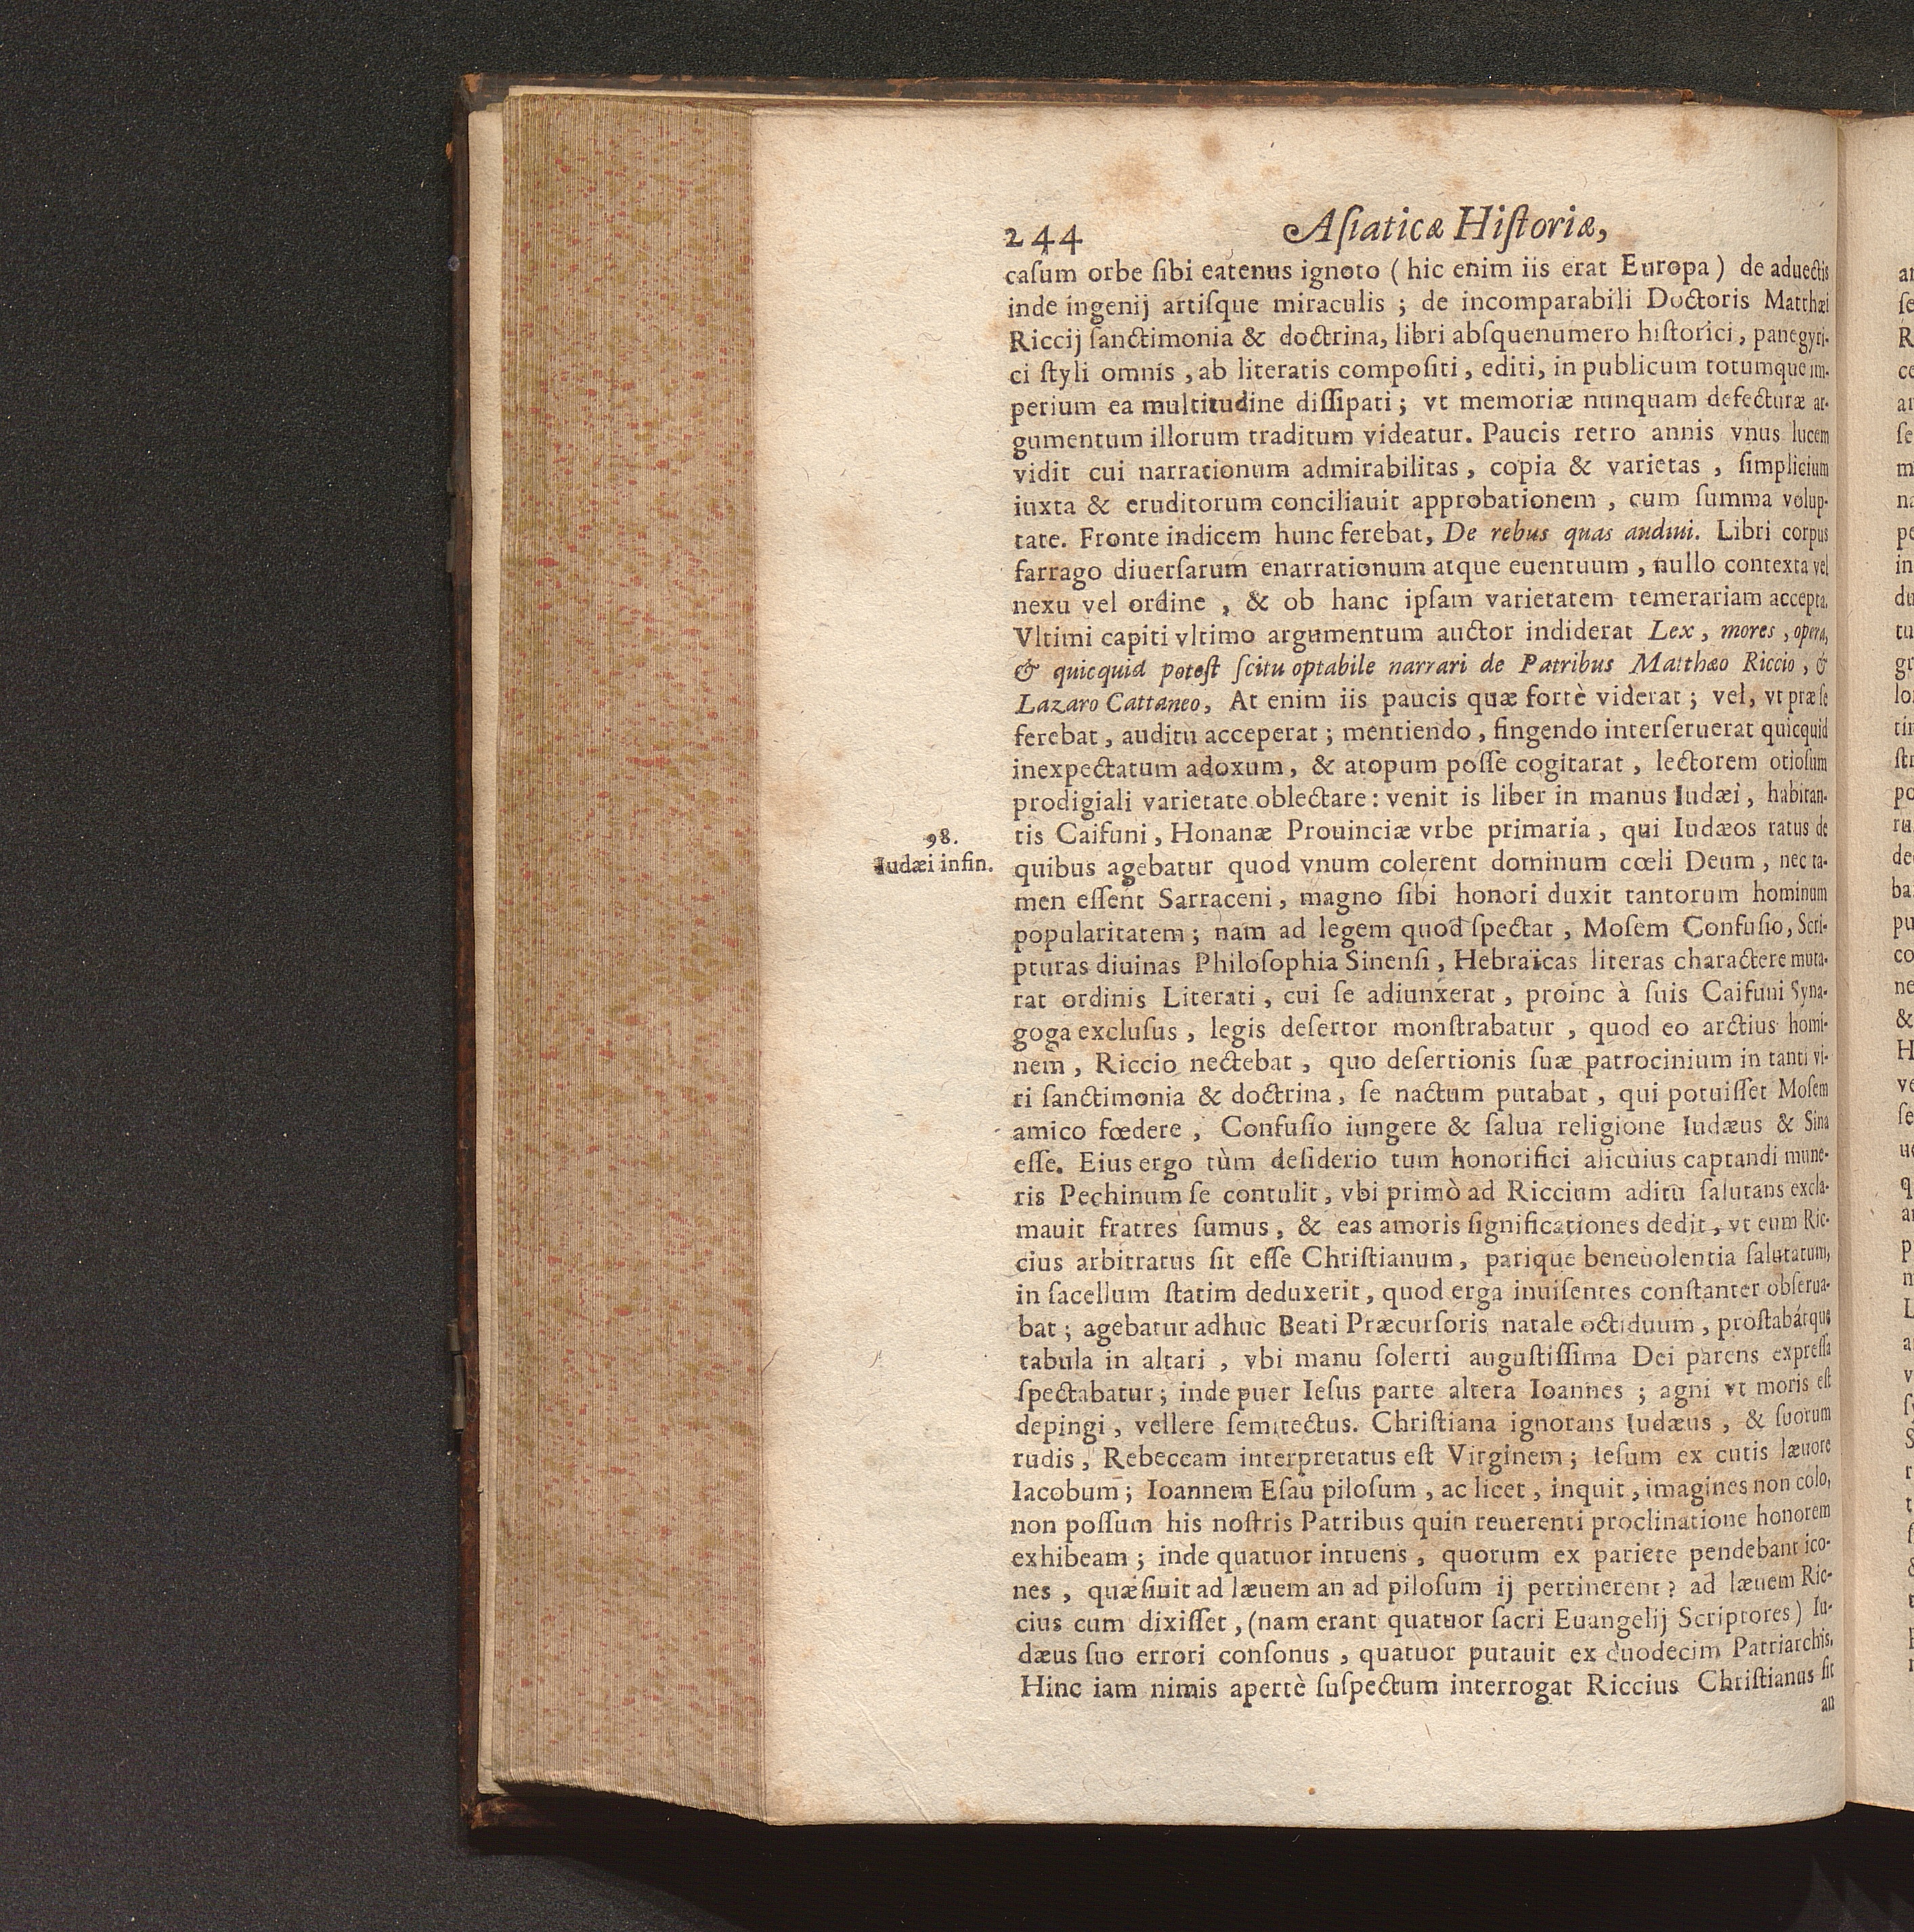 244 Asiaticæ Historiæ,
casum orbe sibi eatenus ignoto (hic enim iis erat Europa) de aduectis
inde ingenij artisque miraculis; de incomparabili Doctoris Matthæi
Riccij sanctimonia & doctrina, libri absquenumero historici, panegyri-
ci styli omnis, ab literatis compositi, editi, in publicum totumque im-
perium ea multitudine dissipati; vt memoriæ nunquam defecturæ ar-
gumentum illorum traditum videatur. Paucis retro annis vnus lucem
vidit cui narrationum admirabilitas, copia & varietas, simplicium
iuxta & eruditorum conciliauit approbationem, cum summa volup-
tate. Fronte indicem hunc ferebat, De rebus quas audiui. Libri corpus
farrago diuersarum enarrationum atque euentuum, nullo contexta vel
nexu vel ordine, & ob hanc ipsam varietatem temerariam accepta.
Vltimi capiti vltimo argumentum auctor indiderat Lex, mores, opera,
& quicquid potest scitu optabile narrari de Patribus Matthæo Riccio, &
Lazaro Cattaneo, At enim iis paucis quæ fortè viderat; vel, vt præ se
ferebat, auditu acceperat; mentiendo, fingendo interseruerat quicquid
inexpectatum adoxum, & atopum posse cogitarat, lectorem otiosum
prodigiali varietate oblectare: venit is liber in manus Iudæi, habitan-
98.
Iudæi insin.
tis Caifuni, Honanæ Prouinciæ vrbe primaria, qui Iudæos ratus de
quibus agebatur quod vnum colerent dominum cœli Deum, nec ta-
men essent Sarraceni, magno sibi honori duxit tantorum hominum
popularitatem; nam ad legem quod spectat, Mosem Confusio, Scri-
pturas diuinas Philosophia Sinensi, Hebraïcas literas charactere muta-
rat ordinis Literati, cui se adiunxerat, proinc à suis Caifuni Syna-
goga exclusus, legis desertor monstrabatur, quod eo arctius homi-
nem, Riccio nectebat, quo desertionis suæ patrocinium in tanti vi-
ri sanctimonia & doctrina, se nactum putabat, qui potuisset Mosem
amico fœdere, Confusio iungere & salua religione Iudæus & Sina
esse. Eius ergo tùm desiderio tum honorifici alicuius captandi mune-
ris Pechinum se contulit, vbi primò ad Riccium aditu salutans excla-
mauit fratres sumus, & eas amoris significationes dedit, vt eum Ric-
cius arbitratus sit esse Christianum, parique beneuolentia salutatum,
in sacellum statim deduxerit, quod erga inuisentes constanter obserua-
bat; agebatur adhuc Beati Præcursoris natale octiduum, prostabátque
tabula in altari, vbi manu solerti augustissima Dei parens expressa
spectabatur; inde puer Iesus parte altera Ioannes; agni vt moris est
depingi, vellere semitectus. Christiana ignorans Iudæus, & suorum
rudis, Rebeccam interpretatus est Virginem; Iesum ex cutis læuore
Iacobum; Ioannem Esau pilosum, ac licet, inquit, imagines non colo,
non possum his nostris Patribus quin reuerenti proclinatione honorem
exhibeam; inde quatuor intuens, quorum ex pariete pendebant ico-
nes, quæsiuit ad læuem an ad pilosum ij pertinerent? ad læuem Ric-
cius cum dixisset, (nam erant quatuor sacri Euangelij Scriptores) Iu-
dæus suo errori consonus, quatuor putauit ex duodecim Patriarchis.
Hinc iam nimis apertè suspectum interrogat Riccius Christianus sit
an